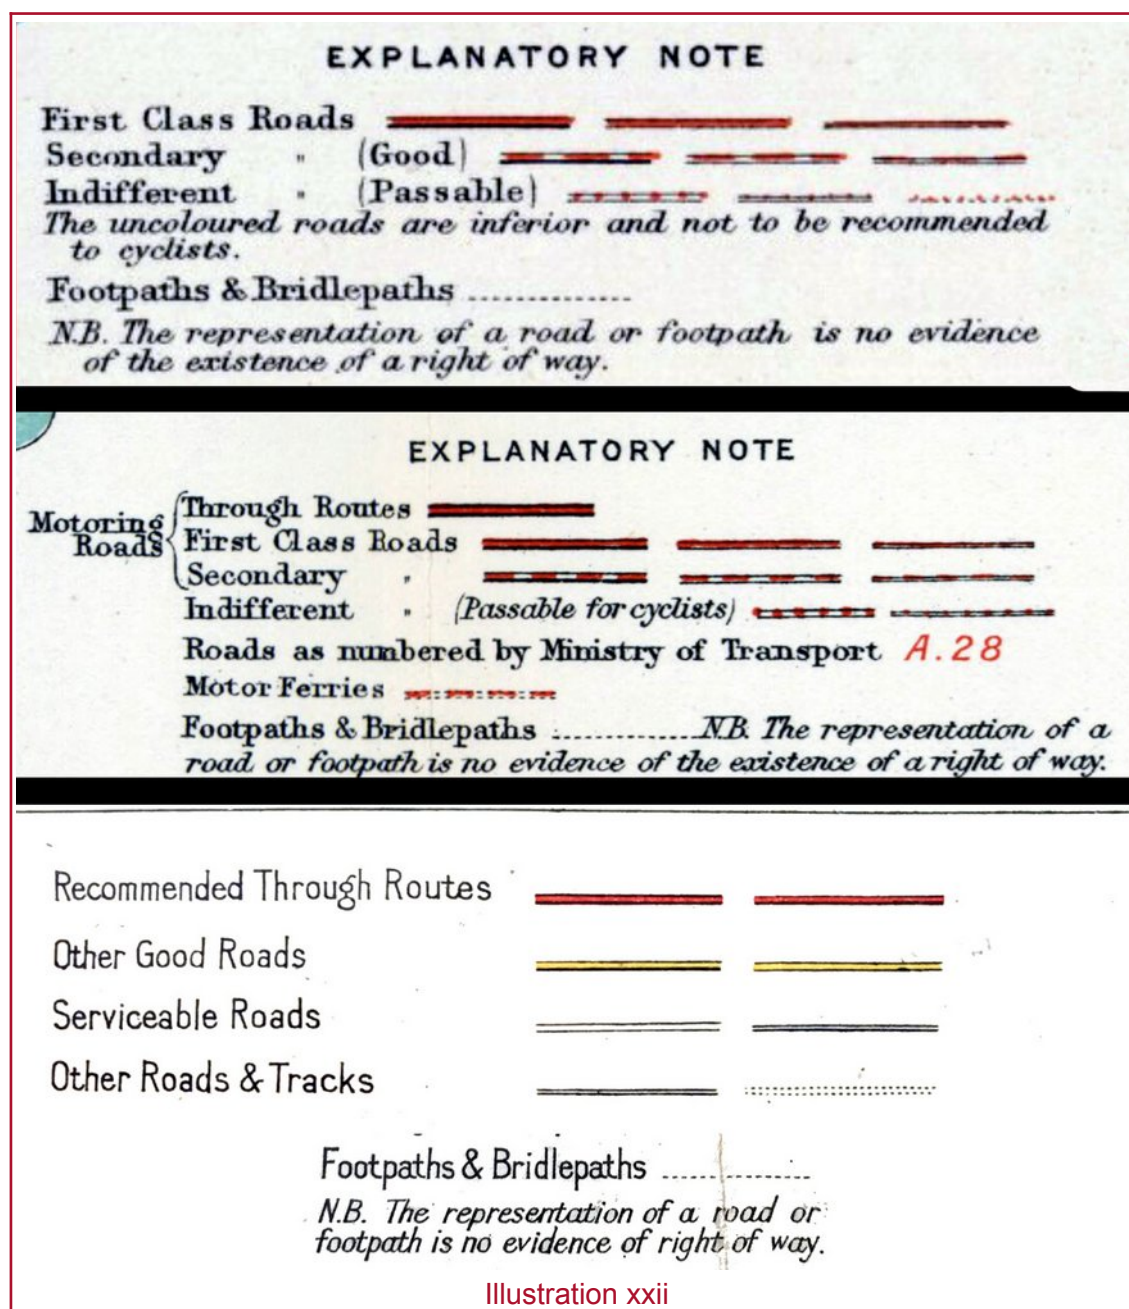 EXPLANATORY NOTE
First Class Roads
Secondary " (Good)
Indifferent " (Passable)
The uncoloured roads are inferior and not to be recommended
to cyclists.
Footpaths & Bridlepaths ................
N.B. The representation of a road or footpath is no evidence
of the existence of a right of way.
EXPLANATORY NOTE
Motoring Roads
Through Routes
First Class Roads
Secondary "
Indifferent " (Passable for cyclists)
Roads as numbered by Ministry of Transport A.28
Motor Ferries
Footpaths & Bridlepaths ............... N.B. The representation of a
road or footpath is no evidence of the existence of a right of way.
Recommended Through Routes
Other Good Roads
Serviceable Roads
Other Roads & Tracks
Footpaths & Bridlepaths ................
N.B. The representation of a road or
footpath is no evidence of right of way.
Illustration xxii